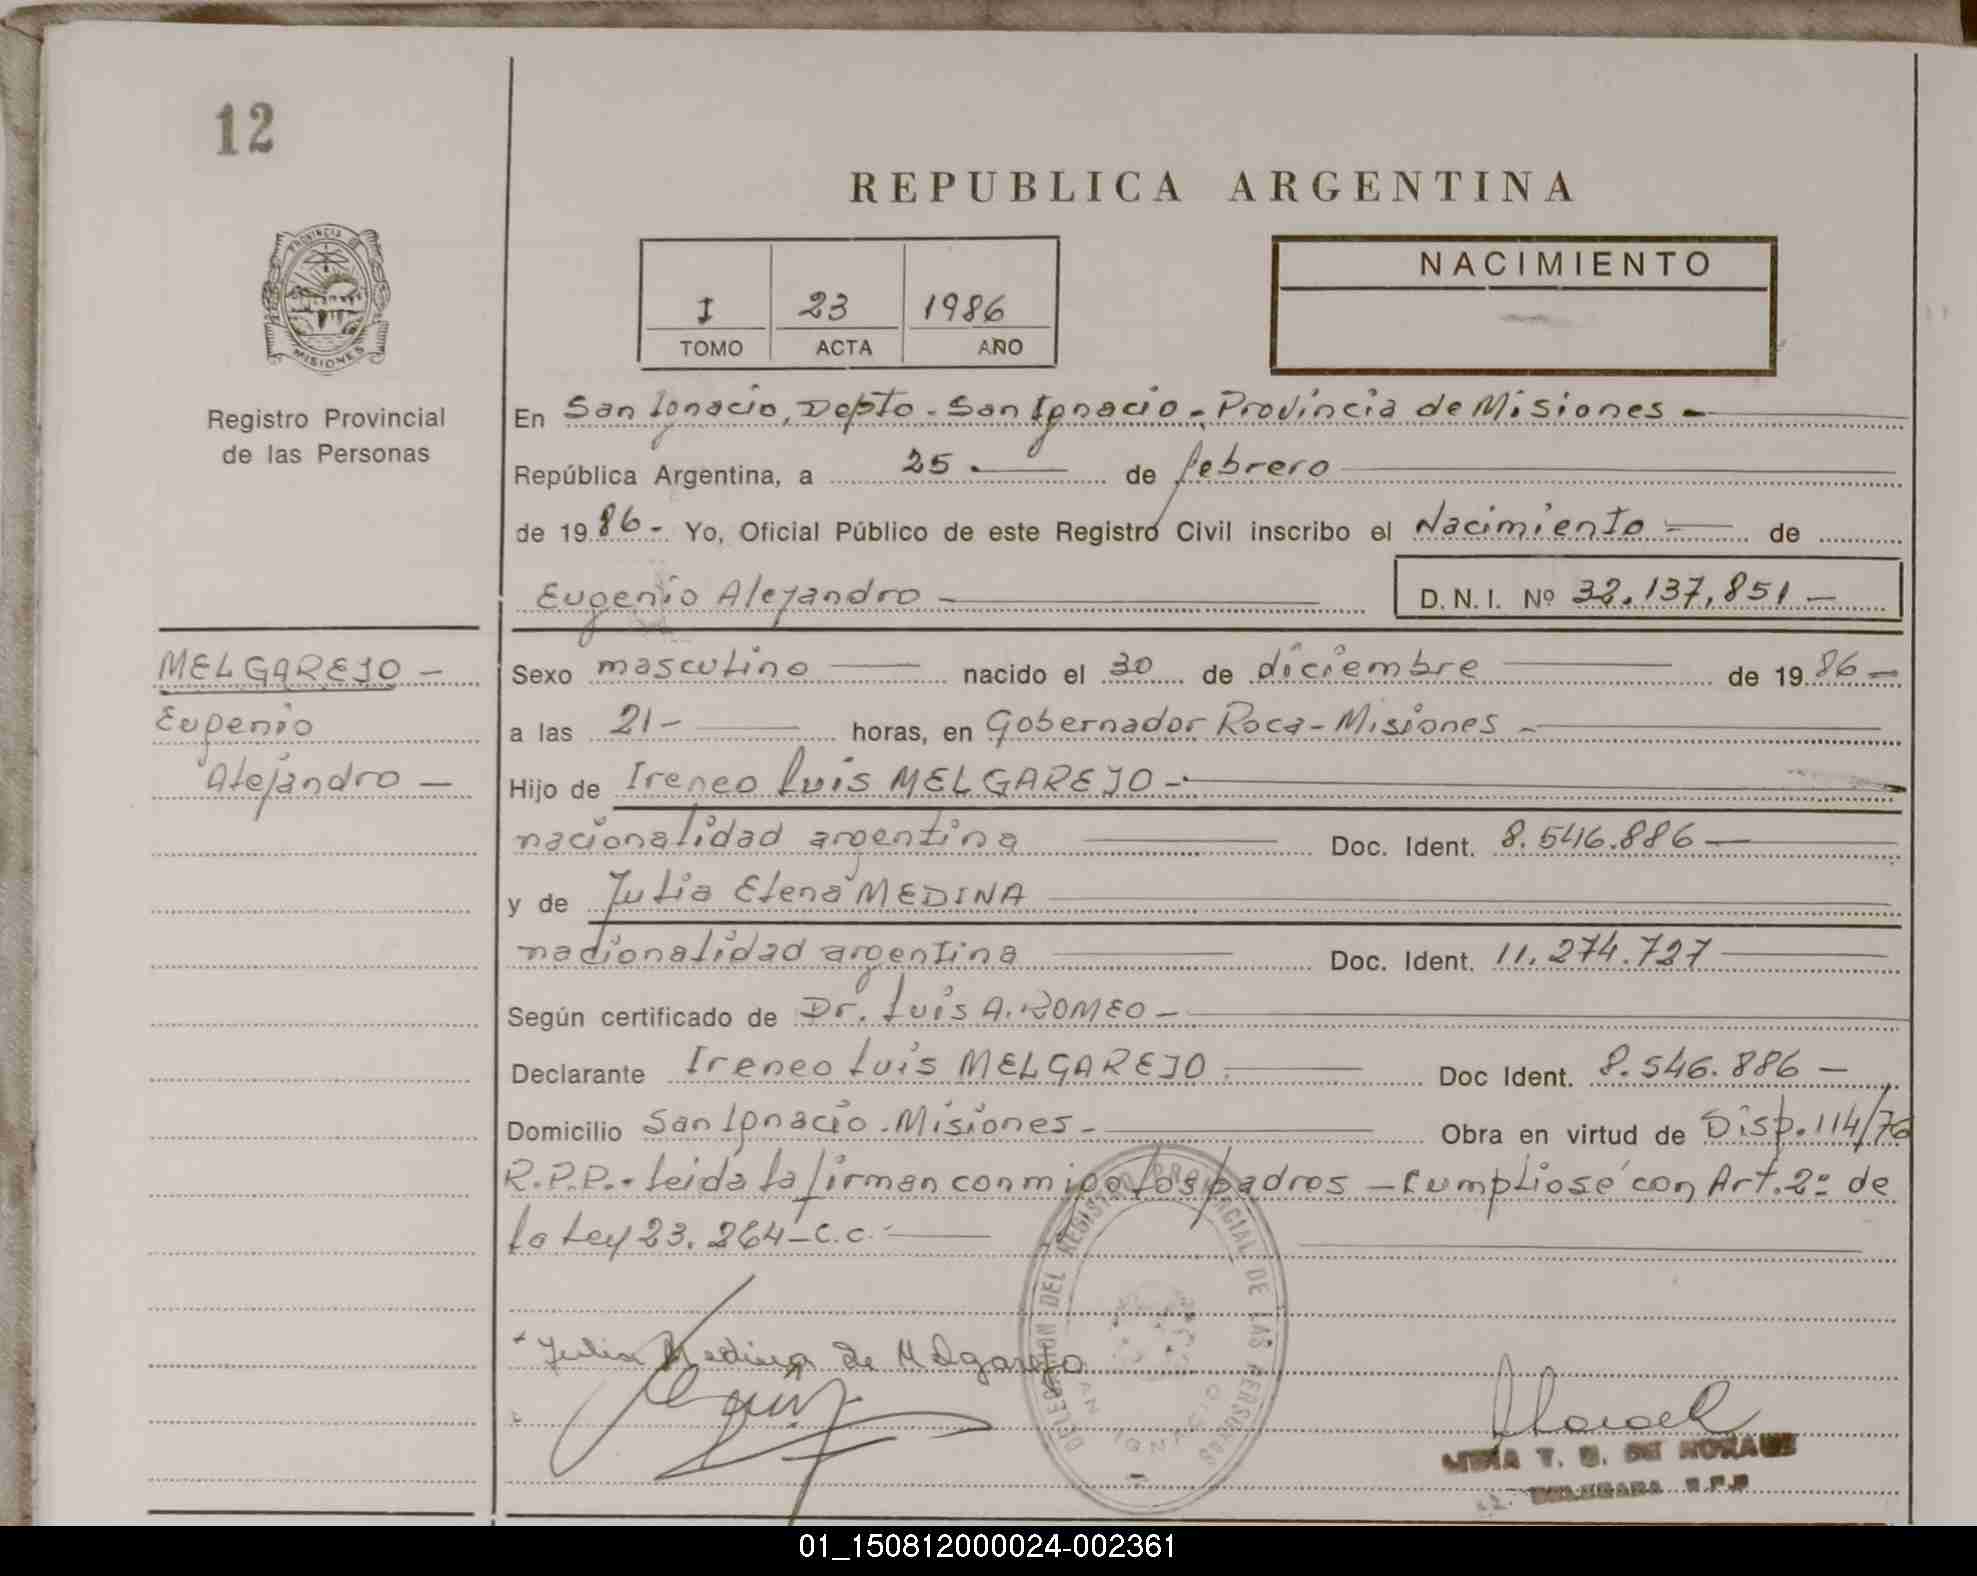 12
REPUBLICA ARGENTINA
PROVINCIA DE
MISIONES
Registro Provincial
de las Personas
I 23 1986
TOMO ACTA AÑO
NACIMIENTO
En San Ignacio, Depto. San Ignacio. Provincia de Misiones -
República Argentina, a 25 . de febrero
de 19 86 - Yo, Oficial Público de este Registro Civil inscribo el Nacimiento - de
Eugenio Alejandro - D.N.I. Nº 32.137.851 -
MELGAREJO -
Eugenio
Alejandro -
Sexo masculino nacido el 30 de diciembre de 19 86 -
a las 21 - horas, en Gobernador Roca - Misiones -
Hijo de Ireneo Luis MELGAREJO -
nacionalidad argentina Doc. Ident. 8.546.886 -
y de Julia Elena MEDINA
nacionalidad argentina Doc. Ident. 11.274.727
Según certificado de Dr. Luis A. ROMEO -
Declarante Ireneo Luis MELGAREJO Doc Ident. 8.546.886 -
Domicilio San Ignacio . Misiones - Obra en virtud de Disp. 114/76
R.P.P. - leida la firman conmigo los padres - Cumpliose con Art. 2º de
la Ley 23.264 - C.C. -
DELEGACION DEL REGISTRO PROVINCIAL DE LAS PERSONAS
SAN IGNACIO
Julia Medina de Melgarejo
T. DE
01_150812000024-002361